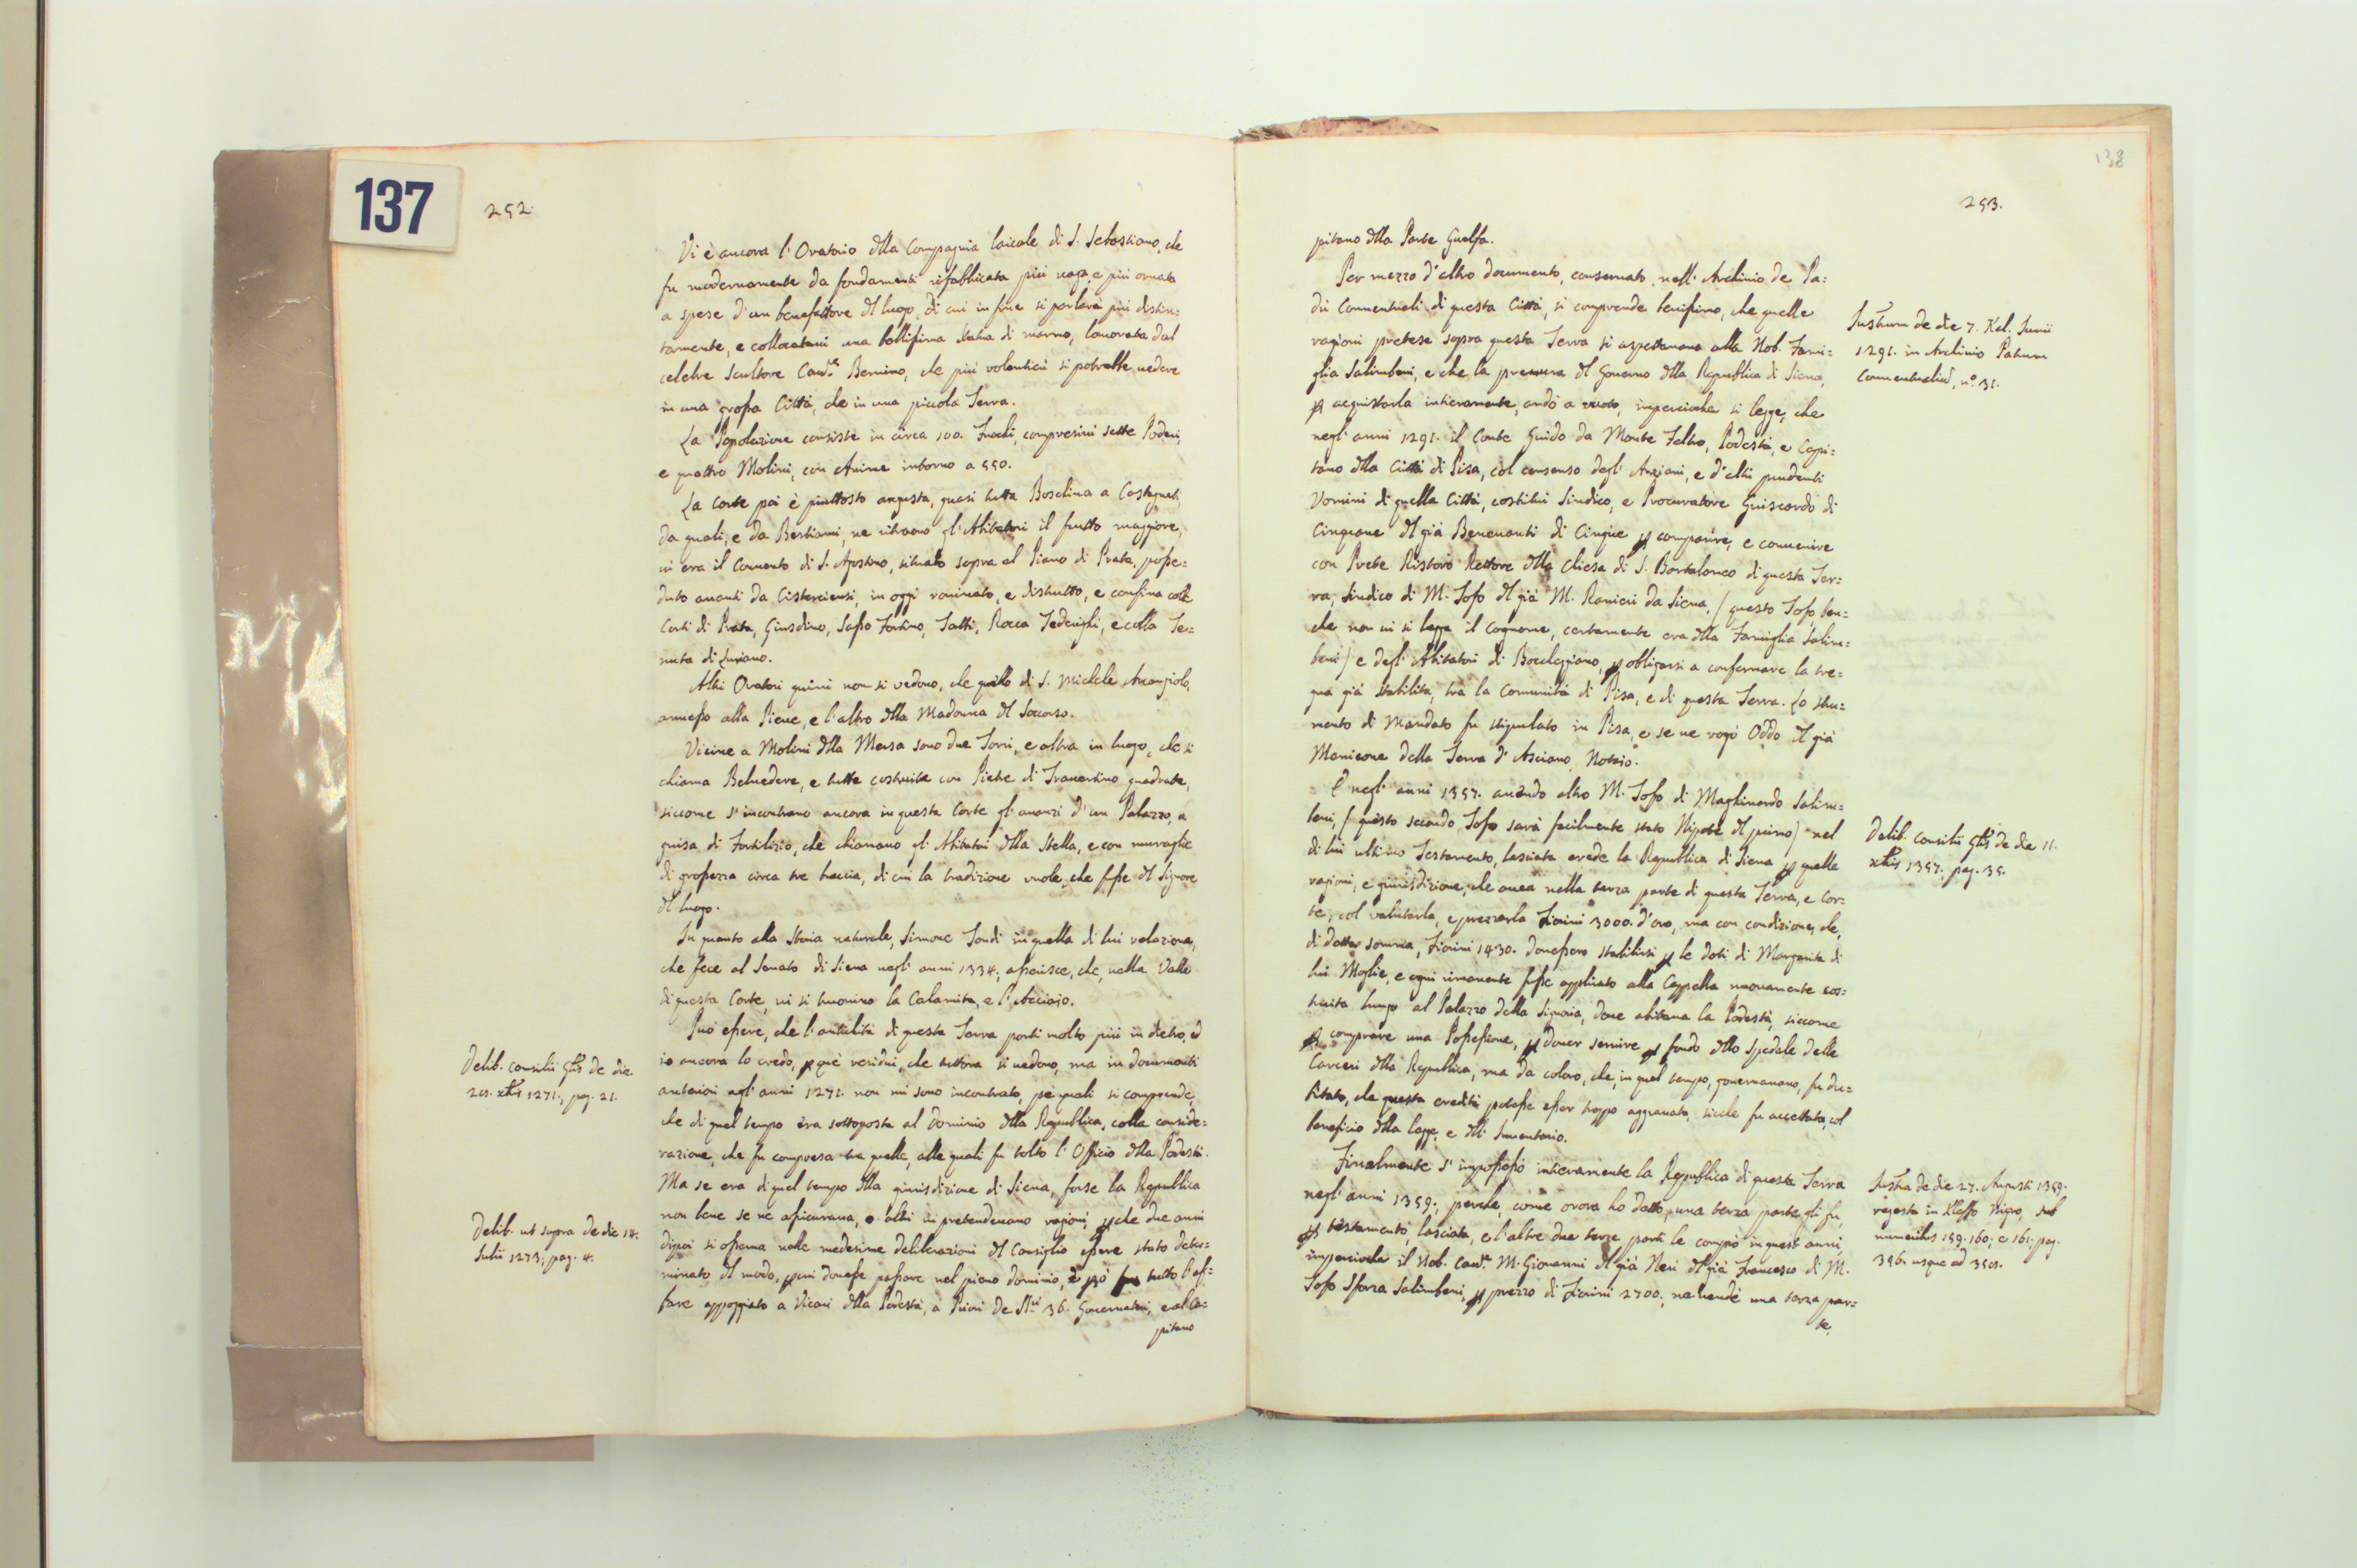 137
252.
Vi è ancora l'Oratorio dlla Compagnia laicale di S. Sebastiano, che
fu modernamente da fondamenti rifabbricata più vaga, e più ornata
a spese d'un benefattore dl luogo, di cui in fine si parlerà più distin=
tamente, e collocatavi una bellissima statua di marmo, lavorata dal
celebre Scultore Cav.re Bernino, che più volentieri si potrebbe vedere
in una grossa Città, che in una piccola Terra.
La Popolazione consiste in circa 100. Fuochi, compresivi sette Poderi,
e quattro Molini, con Anime intorno a 550.
La Corte poi è piuttosto angusta, quasi tutta Boschina a Castagneti,
da quali, e da Bestiami, ne ritraono gl'Abitatori il frutto maggiore,
vi era il Convento di S. Agostino, situato sopra al Piano di Prata, posse=
duto avanti da Cisterciensi, in oggi rovinato, e distrutto, e confina colle
Corti di Prata, Giusdino, Sasso Fortino, Tatti, Rocca Tederighi, e colla Te=
nuta di Luriano.
Altri Oratori quivi non si vedono, che quello di S. Michele Arcangiolo,
annesso alla Pieve, e l'altro dlla Madonna dl Soccorso.
Vicine a Molini dlla Mersa sono due Torri, e altra in luogo, che si
chiama Belvedere, e tutte costruite con Pietre di Travertino quadrate,
siccome s'incontrano ancora in questa Corte gl'avanzi d'un Palazzo, a
guisa di Fortilizio, che chiamano gl'Abitatori dlla Stella, e con muraglie
di grossezza circa tre braccia, di cui la tradizione vuole, che fosse dl Signore
dl luogo.
In quanto alla Storia naturale, Simone Tondi in quella di lui relazione,
che fece al Senato di Siena negl'anni 1334., asserisce, che, nella Valle
di questa Corte, vi si truovino la Calamita, e l'Acciaio.
Può essere, che l'antichità di questa Terra porti molto più in dietro, ed
io ancora lo credo, p que residui, che tuttora si vedono, ma in documenti
anteriori agl'anni 1271. non mi sono incontrato, pe quali si comprende,
che di quel tempo era sottoposta al Dominio dlla Republica, colla conside=
razione, che fu compresa tra quelle, alle quali fu tolto l'Officio dlla Podestà.
Ma se era di quel tempo dlla giurisdizione di Siena, forse la Republica
non bene se ne assicurava, o altri vi pretendevano ragioni, p che due anni
dipoi si osserva nelle medesime deliberazioni dl Consiglio essere stato deter=
minato dl modo, p cui dovesse passare nel pieno dominio, e p ò fu tutto l'af=
fare appoggiato a Vicari dlla Podestà, a Priori de SS.ri 36. Governatori, e al Ca=
pitano
Delib. consilii Gñlis de die
20. xbris 1271., pag. 21.
Delib. ut supra de die 14.
Julii 1273., pag. 4.
138
253.
pitano dlla Parte Guelfa.
Per mezzo d'altro documento, conservato nell'Archivio de Pa=
dri Conventuali di questa Città, si comprende benissimo, che quelle
ragioni pretese sopra questa Terra si aspettavano alla Nob. Fami=
glia Salimbeni, e che la premura dl Governo dlla Republica di Siena,
p acquistarla intieramente, andò a vuoto, imperciocche si legge, che
negl'anni 1291. il Conte Guido da Monte Feltro, Podestà, e Capi=
tano dlla Città di Pisa, col consenso degl'Anziani, e d'altri prudenti
Uomini di quella Città, costituì Sindico, e Procuratore Guiscardo di
Cinquane dl già Benenanti di Cinque p comparire, e convenire
con Prete Ristoro Rettore dlla Chiesa di S. Bartolomeo di questa Ter=
ra, Sindico di M. Sozzo dl già M. Ranieri da Siena, / questo Sozzo, ben=
che non vi si legga il Cognome, certamente era dlla Famiglia Salim=
beni / e degl'Abitatori di Boccheggiano, p obligarsi a confermare la tre=
gua già stabilita, tra la Comunità di Pisa, e di questa Terra. Lo Stru=
mento di Mandato fu stipulato in Pisa, e se ne rogò Oddo dl già
Manicone della Terra d'Asciano, Notaio.
E negl'anni 1357. avendo altro M. Sozzo di Maghinardo Salim=
beni, / questo secondo Sozzo sarà facilmente stato Nipote dl primo / nel
di lui ultimo Testamento, lasciata erede la Republica di Siena p quelle
ragioni, e giurisdizione, che avea nella terza parte di questa Terra, e Cor=
te, col valutarla, e prezzarla Fiorini 3000. d'oro, ma con condizione, che,
di detta somma, Fiorini 1430. dovessero stabilirsi p le doti di Margarita di
lui Moglie, e ogni rimanente fosse applicato alla Cappella nuovamente cos=
truita lungo al Palazzo della Signoria, dove abitava la Podestà, siccome
p comprare una Possessione, p dover servire p fondo dllo Spedale delle
Carceri dlla Republica, ma da coloro, che, in quel tempo, governavano, fu du=
bitato, che questa eredità potesse esser troppo aggravata, sicche fu accettata, col
beneficio dlla legge, e dll'Inventario.
Finalmente s'impossessò intieramente la Republica di questa Terra
negl'anni 1359., perche, come orora ho detto, una terza parte gli fu,
p testamento, lasciata, e l'altre due terze parti le comprò in quest'anni,
imperciocche il Nob. Cav.re M. Giovanni dl già Neri dl già Francesco di M.
Sozzo Sforza Salimbeni, p prezzo di Fiorini 2700., ne vendè una terza par=
te,
Instrum de die 7. Kal. Junii
1291. in Archivio Patrum
Conventualiu, n.o 31.
Delib. consilii Gñlis de die 11.
xbris 1357., pag. 35.
Instra de die 27. Augusti 1359.
regesta in Kleffo Nigro, sub
numeribus 159. 160., e 161., pag.
356. usque ad 360.